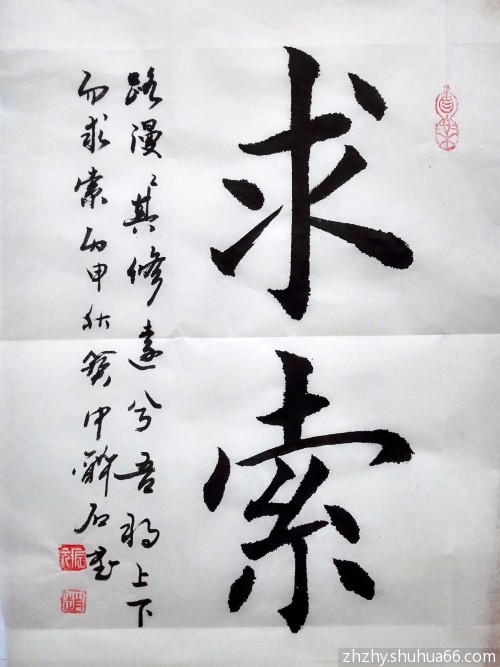 求索
路漫〻其修遠兮吾将上下
而求索丙申秋石書
zhzhy.shuhua66.com